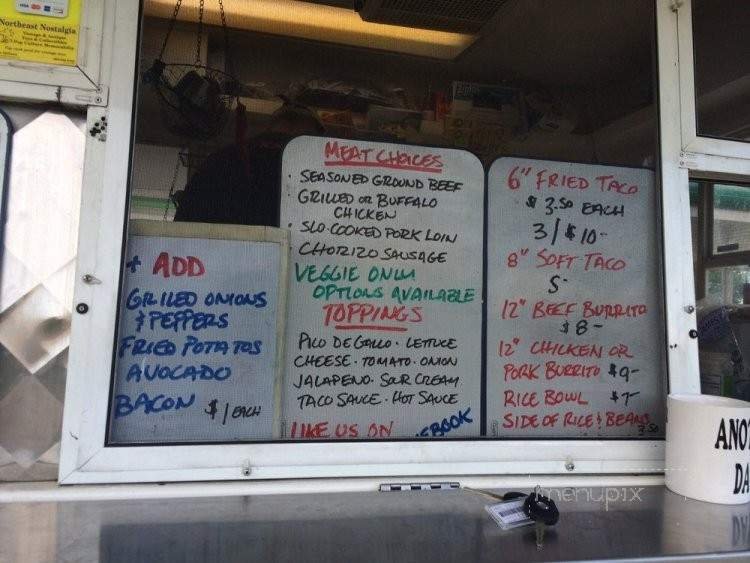 Northeast Nostalgia
+ ADD
GRILLED ONIONS
& PEPPERS
FRIED POTATOS
AVOCADO
BACON $1 EACH
MEAT CHOICES
· SEASONED GROUND BEEF
GRILLED OR BUFFALO
CHICKEN
· SLO-COOKED PORK LOIN
CHORIZO SAUSAGE
VEGGIE ONLY
OPTIONS AVAILABLE
TOPPINGS
PICO DE GALLO · LETTUCE
CHEESE · TOMATO · ONION
JALAPENO · SOUR CREAM
TACO SAUCE · HOT SAUCE
LIKE US ON EBOOK
6" FRIED TACO
$3.50 EACH
3/$10-
8" SOFT TACO
5-
12" BEEF BURRITO
$8-
12" CHICKEN OR
PORK BURRITO $9-
RICE BOWL $7-
SIDE OF RICE & BEANS
3.50
ANO
DA
menupix